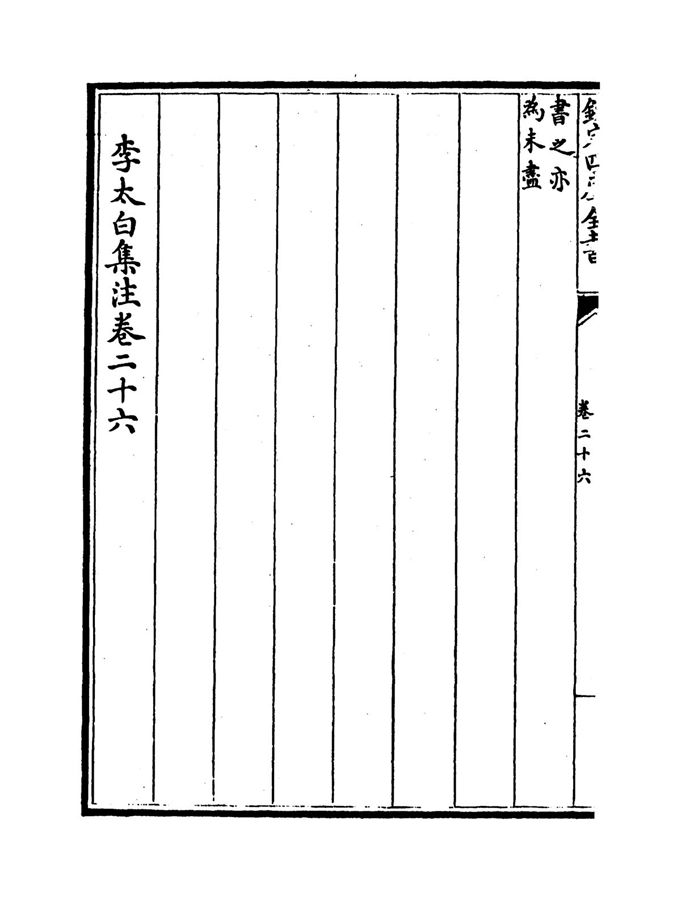 欽定四庫全書
卷二十六
書之亦
為未盡
李太白集注卷二十六